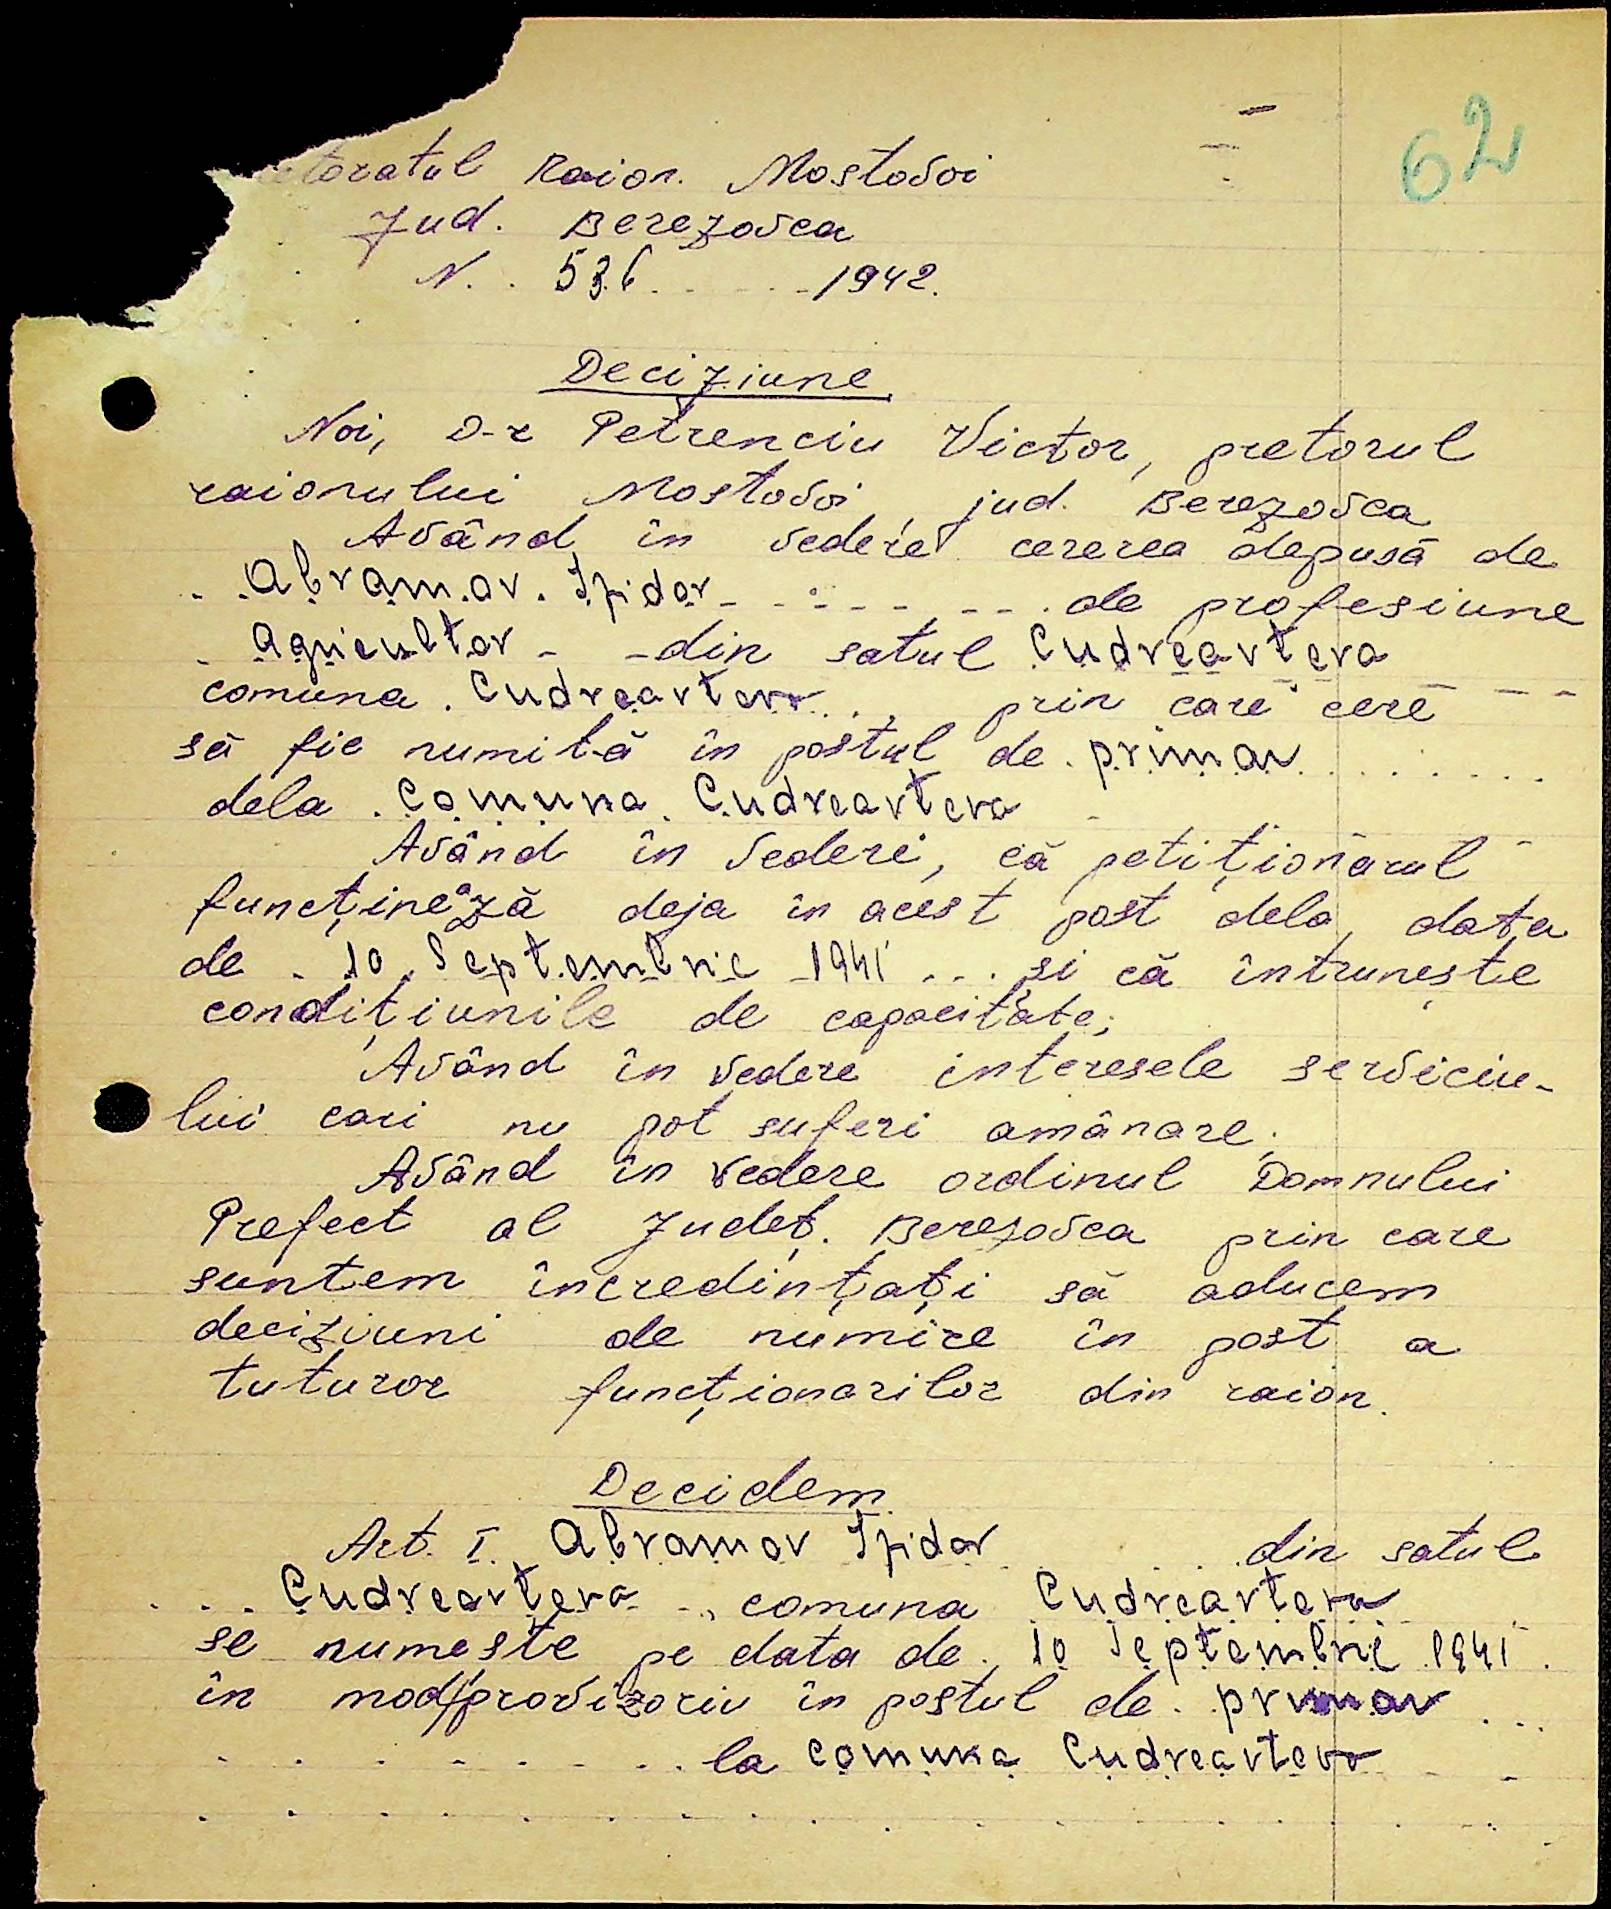 62
etoratul Raion. Mostovoi
Jud. Berezovca
N. . 536 . - - - - 1942.
Deciziune
Noi, D-r Petrenciu Victor, pretorul
raionului Mostovoi, jud. Berezovca
Având în vedere cererea depusă de
Abramov Izidor de profesiune
agricultor din satul Cudreavteva
comuna Cudreavteva prin care cere
să fie numit-ă în postul de primar
dela Comuna Cudreavteva
Având în vedere, că petiționarul
funcținează deja în acest post dela data
de 10 Septembrie 1941 și că întrunește
condițiunile de capacitate;
Având în vedere interesele serviciu-
lui cari nu pot suferi amânare;
Având în vedere ordinul Domnului
Prefect al Județ. Berezovca prin care
suntem încredințați să aducem
deciziuni de numire în post a
tuturor funcționarilor din raion.
Decidem
Art. I. Abramov Izidor din satul
Cudreavteva, comuna Cudreavteva
se numeste pe data de 10 Septembrie 1941
în mod provizoriu în postul de primar
la comuna Cudreavteva